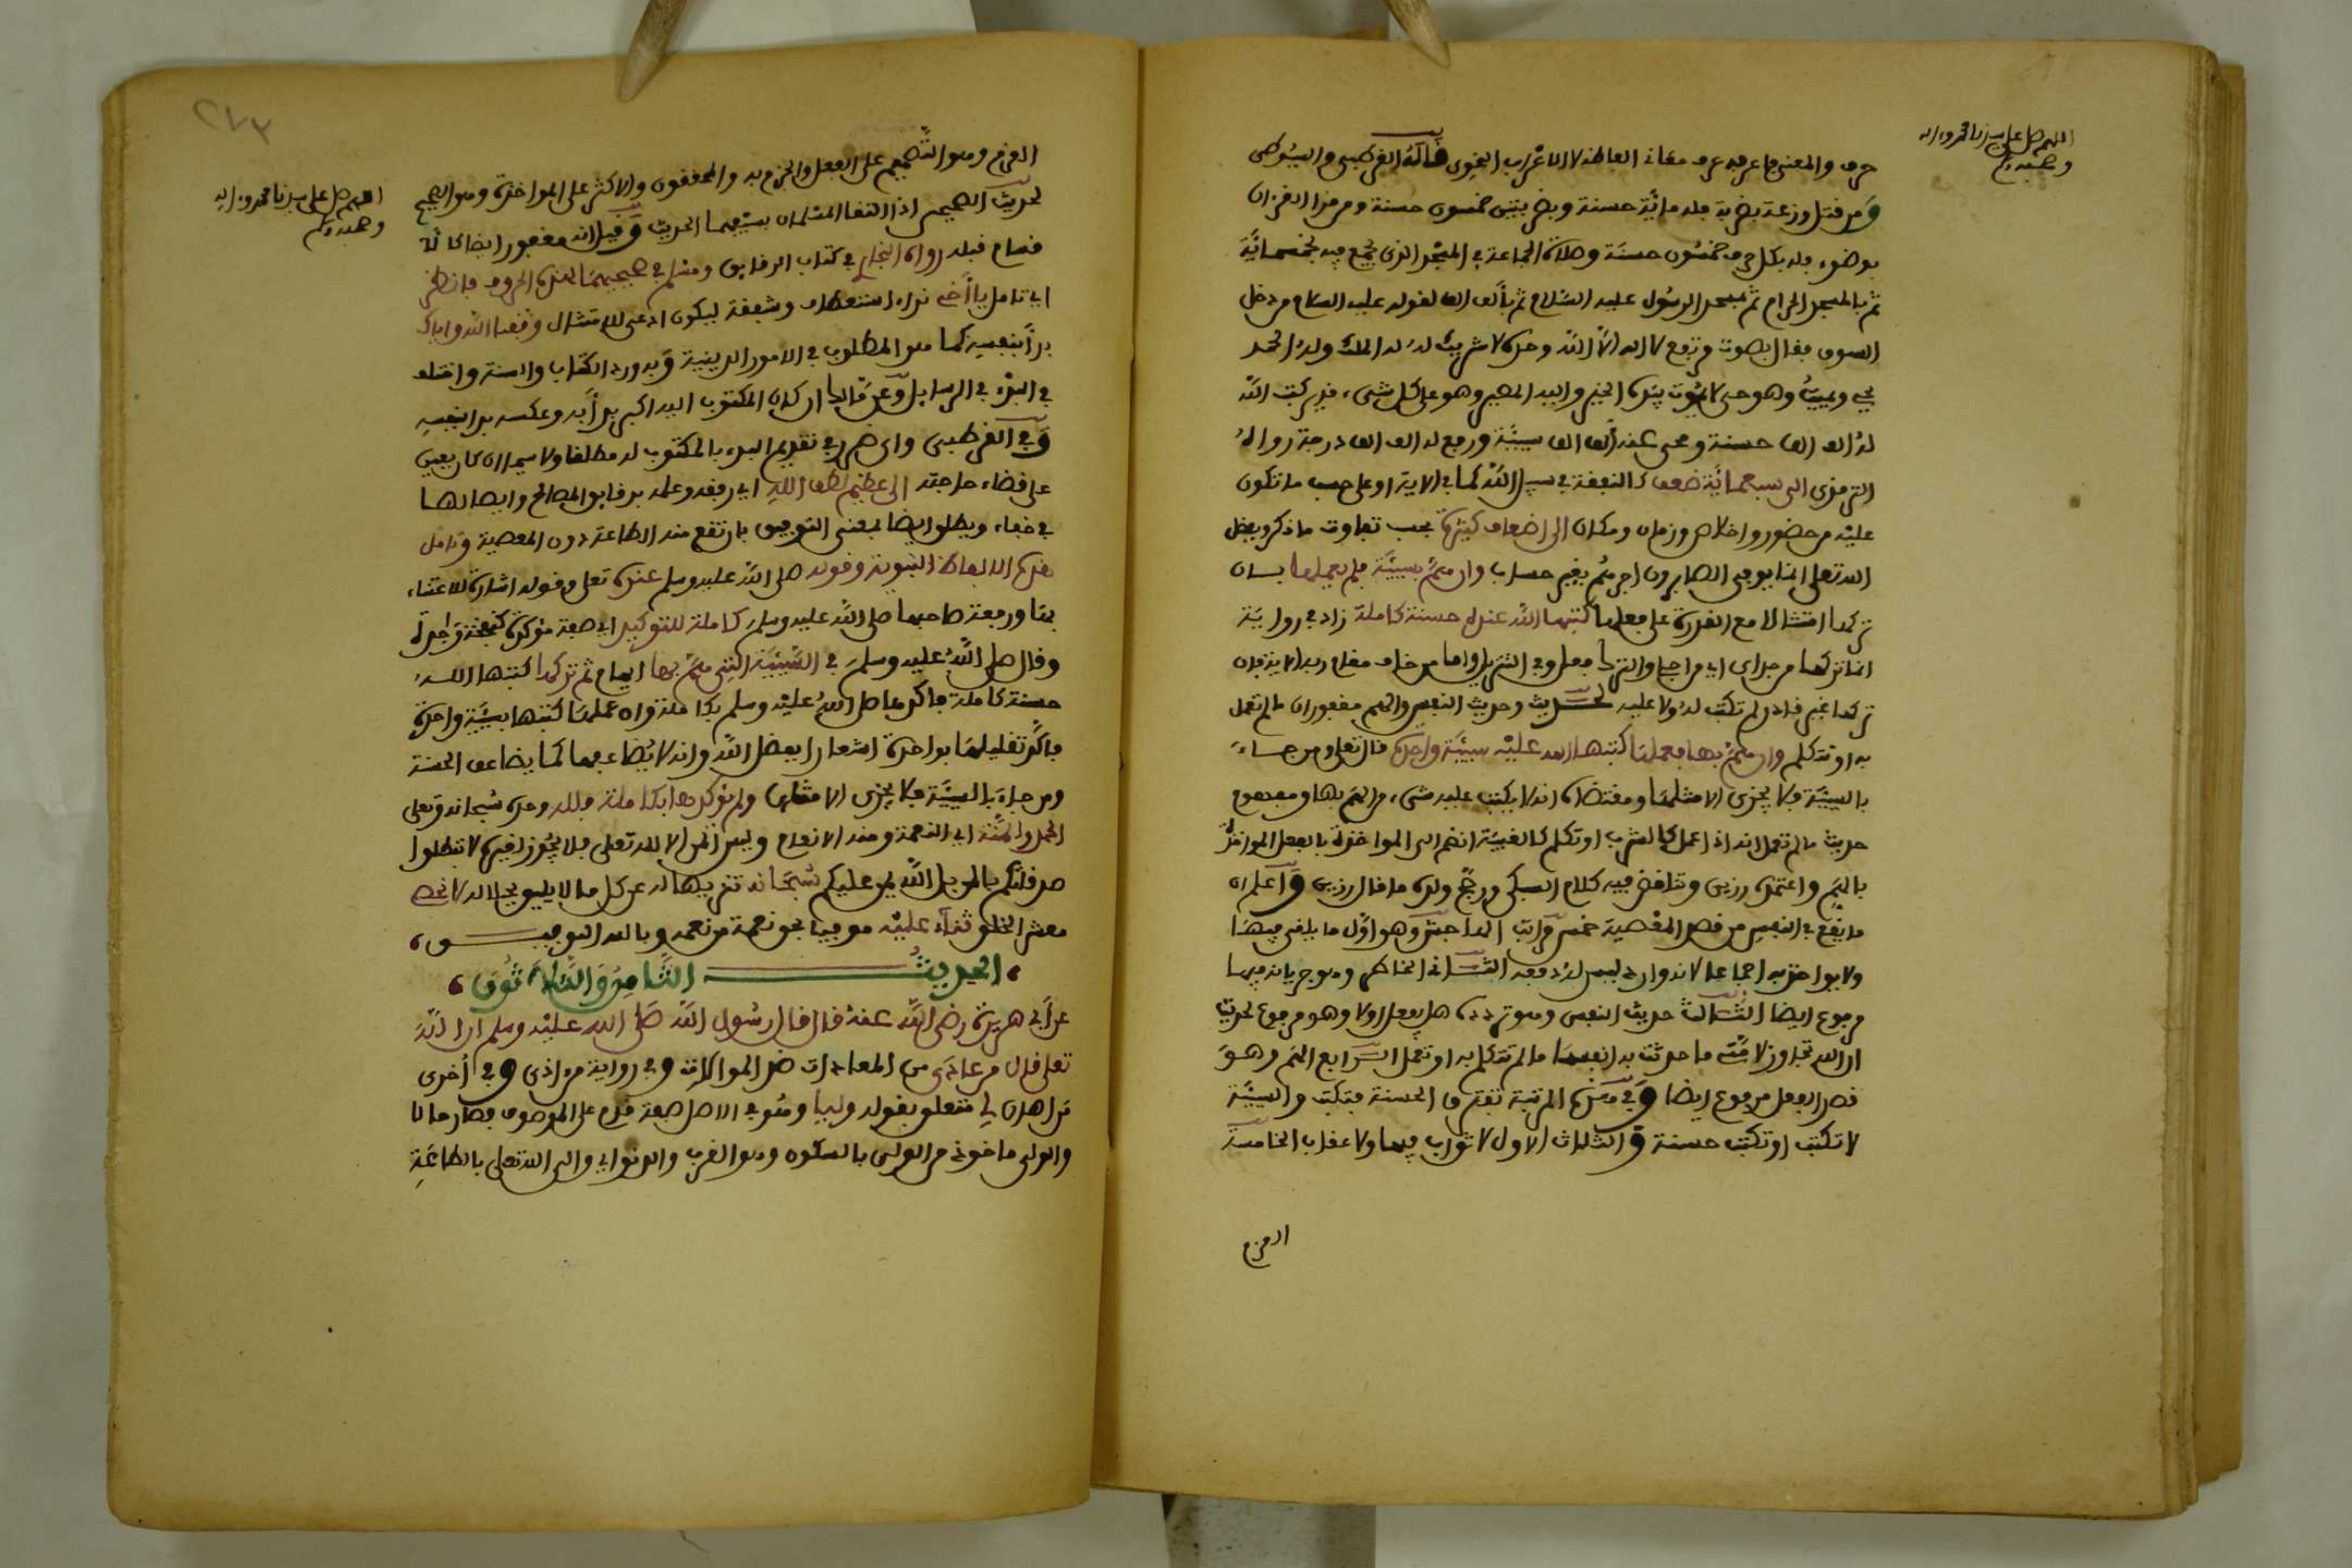 اللهم صل على سيدنا محمد وءاله
وصحبه وسلم
حرف والمعنى ما عرفه عرف معانى الفاظه لا الاعراب النحوى قاله القرطبي والسيوطى
ومن قتل وزغة بضربة فله مائة حسنة وبضربتين خمسون حسنة ومن قرأ القرءان
بوضوء فله بكل حرف خمسون حسنة وصلاة الجماعة في المسجد الذى يجمع فيه بخمسمائة
ثم بالمسجد الحرام ثم بمسجد الرسول عليه السلام ثم بألف الف لقوله عليه السلام من دخل
السوق فقال بصوت مرتفع لا اله الا الله وحده لا شريك له له الملك وله الحمد
يحي ويميت وهو حى لا يموت بيده الخير واليه المصير وهو على كل شىء قدير كتب الله
له الف الف حسنة ومحى عنه ألف الف سيئة ورفع له الف الف درجة رواه
الترمذى الى سبعمائة ضعف كالنفقة في سبيل الله كما في الاية او على حسب ما تكون
عليه من حضور واخلاص وزمان ومكان الى اضعاف كثيرة بحسب تفاوت ما ذكر وبفضل
الله تعلى انما يوفى الصابرون اجرهم بغير حساب وان هم بسيئة فلم يعملها بان
تركها امتثالا مع القدرة على فعلها كتبها الله عنده حسنة كاملة زاد في رواية
انما تركها من جراى اي من اجلى والترك فعل وفي التنزيل واما من خاف مقام ربه الاية فان
تركها لغير ذلك لم تكتب له ولا عليه لحديث وحديث النفس والهم مغفوران ما لم تعمل
به او تتكلم وان هم بها فعملها كتبها الله عليه سيئة واحدة قال تعلى ومن جاء
بالسيئة فلا يجزى الا مثلها ومقتضاه انه لا يكتب عليه شىء من الهم بها ومفهوم
حديث ما لم تعمل انه اذا عمل كالشرب او تكلم كالغيبة انضم الى المواخذة بالفعل المواخذة
بالهم واعتمده رزين وتناقض فيه كلام السبكى ورجح ولده ما قال رزين واعلم ان
ما يقع في النفس من قصد المعصية خمس مراتب الهاجس وهو اول ما يلقى فيها
ولا يواخذ به اجماعا لانه وارد ليس له دفعه الثانى الخاطر وهو جريانه فيها
مرفوع ايضا الثالث حديث النفس وهو تردده هل يفعل اولا وهو مرفوع لحديث
ان الله تجاوز لامتى ما حدثت به انفسها ما لم تتكلم به او تعمل الرابع الهم وهو
قصد الفعل مرفوع ايضا وفي هذه المرتبة تفترق الحسنة فتكتب والسيئة
لا تكتب او تكتب حسنة والثلاث الاول لا ثواب فيها ولا عقاب الخامسة
العزم
٢٧٣
اللهم صل على سيدنا محمد وءاله
وصحبه وسلم
العزم وهو التصميم على الفعل والجزم به والمحققون والاكثر على المواخذة وهو الصحيح
لحديث الصحيحين اذا التقا المسلمان بسيفيهما الحديث وقيل انه مغفور ايضا كالذ
قبله رواه البخارى في كتاب الرقايق ومسلم في صحيحيهما بهذه الحروف فانظر
اي تامل يا أخى نداء استعطاف وشفقة ليكون ادعى للامتثال وفقنا الله واياك
بدأ بنفسه كما هو المطلوب في الامور الدينية وبه ورد الكتاب والسنة واختلف
في البدء في الرسايل وعن مالك ان كان المكتوب اليه اكبر بدأ به وعكسه بدا بنفسه
وفي القرطبى تقديم البدء بالمكتوب له مطلقا ولا سيما ان كان يعين
على قضاء حاجته الى عظيم لطف الله اي رفقه وعلمه بدقايق المصالح وايصالها
في خفاء ويطلق ايضا بمعنى التوفيق بان تقع منه الطاعة دون المعصية وتامل
هذه الالفاظ النبوية وقوله صلى الله عليه وسلم عنده تعلى وقوله اشارة للاعتناء
بها ورفعة صاحبها صلى الله عليه وسلم كاملة للتوكيد اي صفة موكدة كنفخة واحدة
وقال صلى الله عليه وسلم في السيئة التى هم بها ايهام ثم تركها كتبها الله
حسنة كاملة فاكدها صلى الله عليه وسلم بكاملة وان عملها كتبها سيئة واحدة
فاكد تقليلها بواحدة اشعارا بفضل الله وانه لا يضاعفها كما يضاعف الحسنة
ومن جاء بالسيئة فلا يجزى الا مثلها ولم يوكدها بكاملة فلله وحده سبحانه وتعلى
الحمد والمنة اي النعمة ومنه الانعام وليس المن الا لله تعلى فلا يجوز لغيره لا تبطلوا
صدقاتكم بالمن بل الله يمن عليكم سبحانه تنزيها له عن كل ما لا يليق بجلاله لا نحصى
معشر الخلق ثناء عليه موفيا بحق نعمة من نعمه وبالله التوفيق
الحديث الثامن والثلاثون
عن أبي هريرة رضى الله عنه قال قال رسول الله صلى الله عليه وسلم ان الله
تعلى قال من عادى من المعادات ضد الموالات وفي رواية من اذى وفي أخرى
من اهان لي متعلق بقوله وليا وهو في الاصل صفة قدم على الموصوف فصار حالا
والولى ماخوذ من الولى بالسكون وهو القرب والدنو اي والى الله تعلى بالطاعة